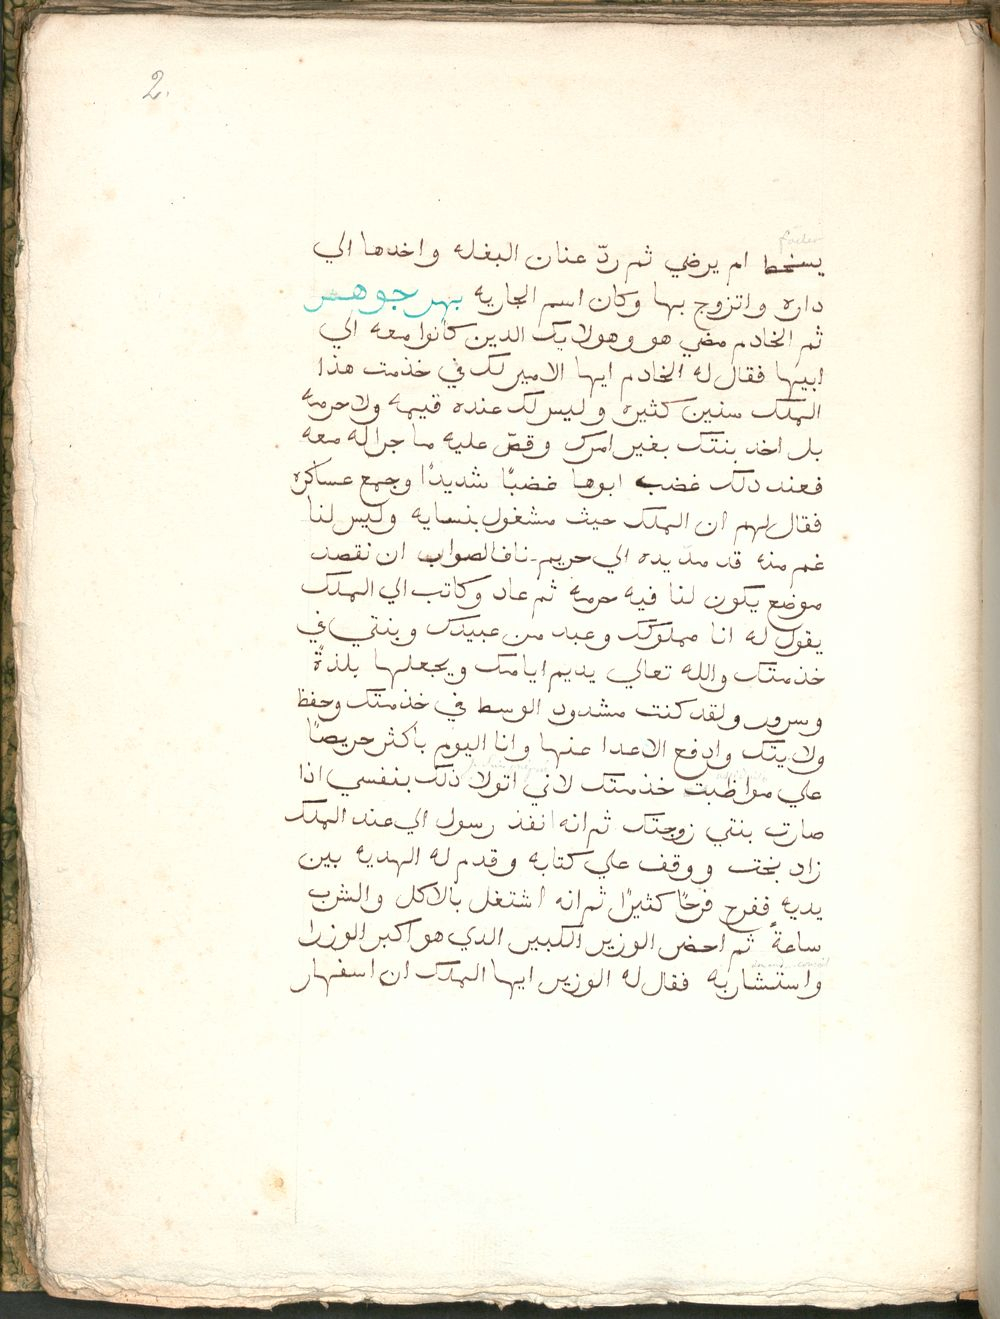 2.
يسخط ام يرضي ثم ردّ عنان البغله واخدها الي
داره واتزوج بها وكان اسم الجاريه بهرجوهر
ثم الخادم مضي هو وهولايك الدين كانوا معه الي
ابيها فقال له الخادم ايها الامير لك في خذمت هذا
الملك سنين كثيره وليس لك عنده قيمه ولا حرمه
بل اخد بنتك بغير امرك وقصّ عليه ما جرا له معه
فعند دلك غضب ابوها غضبًا شديدًا وجمع عساكره
فقال لهم ان الملك حيث مشغول بنسايه وليس لنا
غم منه قد مدّ يده الي حريمنا فالصواب ان نقصد
موضع يكون لنا فيه حرمه ثم عاد وكاتب الي الملك
يقول له انا مملوكك وعبد من عبيدك وبنتي في
خذمتك والله تعالي يديم ايامك ويجعلها بلذةً
وسرور ولقد كنت مشدود الوسط في خذمتك وحفظ
ولايتك وادفع الاعدا عنها وانا اليوم باكثر حريصًا
علي مواظبت خذمتك لاني اتولا ذلك بنفسي اذا
صارت بنتي زوجتك ثم انه انفذ رسول الي عند الملك
زاد بخت ووقف علي كتابه وقدم له الهديه بين
يديه ففرح فرحًا كثيرًا ثم انه اشتغل بالاكل والشرب
ساعةً ثم احضر الوزير الكبير الدي هو اكبر الوزرا
واستشار به فقال له الوزير ايها الملك ان اسفهار